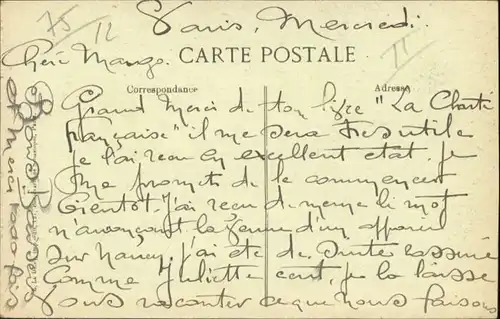 75
12
Paris, Mercredi.
11
Chère
CARTE POSTALE
Correspondance
Adresse
Grand Merci de ton livre "La Charité
française" il me sera très utile
je l'ai reçu en excellent état. Je
me promets de le commencer
bientôt. J'ai reçu de même le mot
m'avonçant la venue d'un appareil
sur Nancy. j'ai été de suite rassuré
Comme Juliette écrit, je la laisse
vous raconter ce que nous faisons
Bons Baisers
et Merci 1000 fois